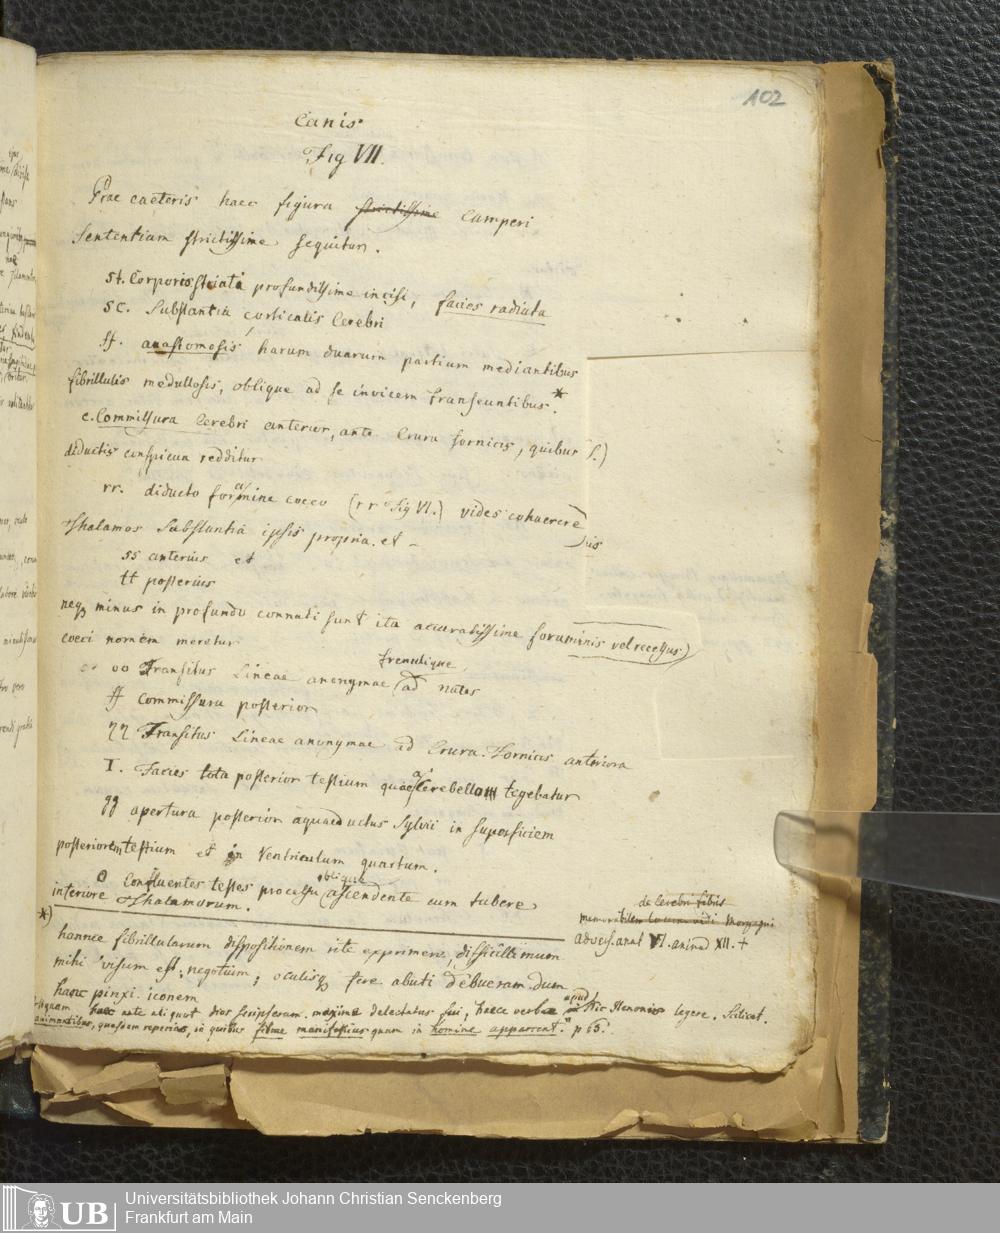 102
Canis
Fig VII.
Prae caeteris haec figura strictissime Camperi
Sententiam strictissime sequitur.
st. Corporis striati profundissime incisi, facies radiata
sc. Substantia corticalis Cerebri
ff. anastomosis harum duarum partium mediantibus
fibrillulis medullosis, oblique ad se invicem transeuntibus. *
c. Commissura Cerebri anterior, ante Crura fornicis, quibus (s.)
diductis conspicua redditur
rr. diducto foramine coeco (rr Fig VI.) vides cohaerere
Thalamos Substantia ipsis propria et
ss anterius et
tt posterius
neq minus in profundo connati sunt ita accuratissime foraminis vel recessus)
coeci nomen meretur
oo Transitus Lineae anonymae ad nates
ff Commissura posterior
ηη Transitus Lineae anonymae ad Crura Fornicis anteriora
I. Facies tota posterior testium quae a Cerebello tegebatur
gg apertura posterior aquaeductus Sylvii in superficiem
posteriorem testium et in Ventriculum quartum.
Θ Confluentes testes processu oblique ascendente cum tubere
interiore Thalamorum.
de Cerebri fibris
memorabilem locum vidi Morgagni
advers. anat VI. animad XII. +
*) hancce fibrillularum dispositionem rite exprimere, difficillimum
mihi visum est, negotium; oculisq fere abuti debueram dum
hanc pinxi iconem
haec ante aliquot dies scripseram. maxime delectatus fui, haece verba apud Nic Stenonis legere. Scilicet.
animantibus, quasdam reperies, in quibus fibrae manifestius quam in homine apparent." p 65.
UB
Universitätsbibliothek Johann Christian Senckenberg
Frankfurt am Main